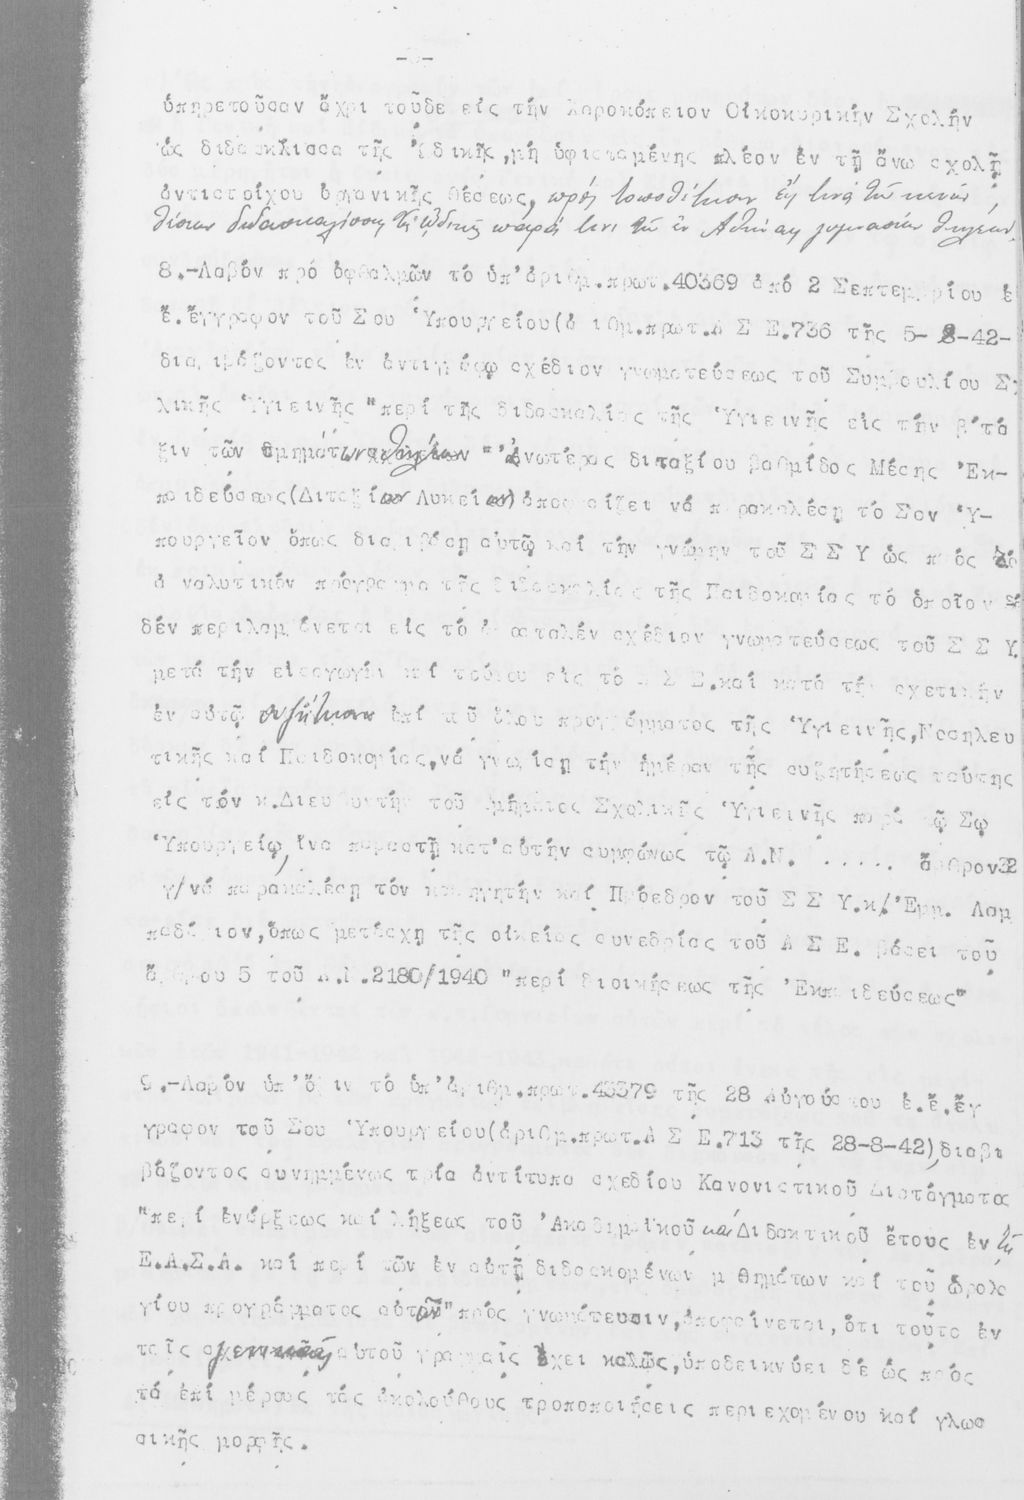 ὑπηρετοῦσαν ἄχρι τοῦδε εἰς τήν Χαροκόπειον Οἰκοκυρικήν Σχολήν
ὡς διδασκάλισσα τῆς Ὠδικῆς, μή ὑφισταμένης πλέον ἐν τῇ ἄνω σχολῇ
ἀντιστοίχου ὀργανικῆς θέσεως, πρός τοποθέτησιν εἰς τινά τῶν κενῶν
θέσεων διδασκαλίσσης τῆς Ὠδικῆς παρά τινι τῶν ἐν Ἀθήναις γυμνασίων θηλέων.
8.-Λαβόν πρό ὀφθαλμῶν τό ὑπ'ἀριθμ.πρωτ.40369 ἀπό 2 Σεπτεμβρίου ἐ
ἔ.ἔγγραφον τοῦ Σου Ὑπουργείου(ἀριθμ.πρωτ.Α Σ Ε.736 τῆς 5-8-42-
διαβιβάζοντος ἐν ἀντιγράφῳ σχέδιον γνωματεύσεως τοῦ Συμβουλίου Σχ
λικῆς Ὑγιεινῆς "περί τῆς διδασκαλίας τῆς Ὑγιεινῆς εἰς τήν β'τά
ξιν τῶν θηλέων "Ἀνωτέρας διταξίου βαθμίδος Μέσης Ἐκ-
παιδεύσεως(Διταξίων Λυκείων)ἀποφασίζει νά παρακαλέσῃ τό Σον Ὑ-
πουργεῖον ὅπως διαβιβάσῃ αὐτῷ καί τήν γνώμην τοῦ Σ Σ Υ ὡς πρός τό
ἀναλυτικόν πρόγραμμα τῆς διδασκαλίας τῆς Παιδοκομίας τό ὁποῖον
δέν περιλαμβάνεται εἰς τό ἀποσταλέν σχέδιον γνωματεύσεως τοῦ Σ Σ Υ.
μετά τήν εἰσαγωγήν καί τούτου εἰς τό Α Σ Ε.καί κατά τήν σχετικήν
ἐν αὐτῷ συζήτησιν ἐπί τοῦ ὅλου προγράμματος τῆς Ὑγιεινῆς,Νοσηλευ
τικῆς καί Παιδοκομίας,νά γνωρίσῃ τήν ἡμέραν τῆς συζητήσεως ταύτης
εἰς τόν κ.Διευθυντήν τοῦ Τμήματος Σχολικῆς Ὑγιεινῆς παρά τῷ Σῳ
Ὑπουργείῳ, ἵνα παραστῇ κατ'αὐτήν συμφώνως τῷ Α.Ν. ..... ἄρθρον32
γ/νά παρακαλέσῃ τόν καθηγητήν καί Πρόεδρον τοῦ Σ Σ Υ.κ/Ἐμμ. Λαμ
παδάριον,ὅπως μετάσχῃ τῆς οἰκείας συνεδρίας τοῦ Α Σ Ε. βάσει τοῦ
ἄρθρου 5 τοῦ Α.Ν.2180/1940 "περί διοικήσεως τῆς Ἐκπαιδεύσεως"
9.-Λαβόν ὑπ'ὄψιν τό ὑπ'ἀριθμ.πρωτ.43379 τῆς 28 Αὐγούστου ἐ.ἔ.ἔγ
γραφον τοῦ Σου Ὑπουργείου(ἀριθμ.πρωτ.Α Σ Ε.713 τῆς 28-8-42),διαβι
βάζοντος συνημμένως τρία ἀντίτυπα σχεδίου Κανονιστικοῦ Διατάγματος
"περί ἐνάρξεως καί λήξεως τοῦ Ἀκαδημαϊκοῦ καί Διδακτικοῦ ἔτους ἐν τῇ
Ε.Α.Σ.Α. καί περί τῶν ἐν αὐτῇ διδασκομένων μαθημάτων καί τοῦ ὡρολο
γίου προγράμματος αὐτῶν"πρός γνωμάτευσιν,ἀποφαίνεται,ὅτι τοῦτο ἐν
ταῖς γενικαῖς αὐτοῦ γραμμαῖς ἔχει καλῶς,ὑποδεικνύει δέ ὡς πρός
τά ἐπί μέρους τάς ἀκολούθους τροποποιήσεις περιεχομένου καί γλωσ
σικῆς μορφῆς.